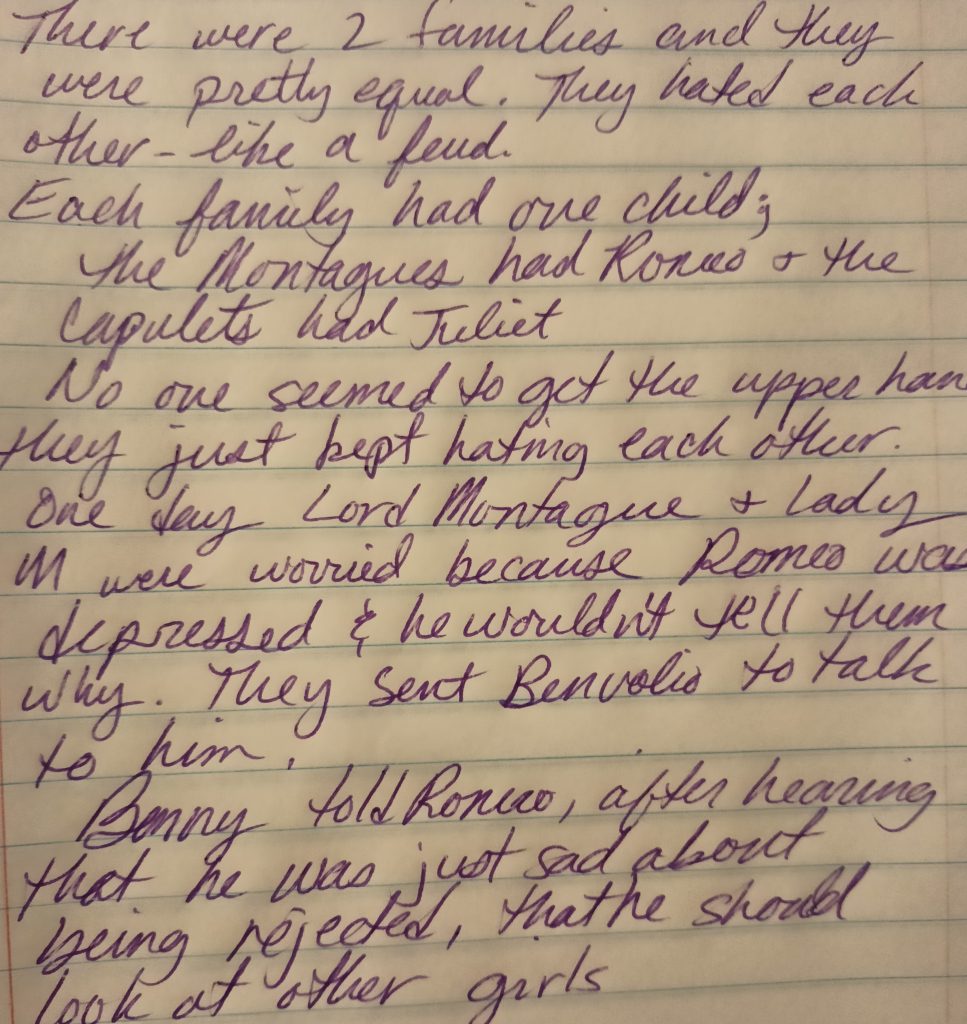 There were 2 families and they
were pretty equal. They hated each
other - like a feud.
Each family had one child;
the Montagues had Romeo & the
Capulets had Juliet
No one seemed to get the upper han
they just kept hating each other.
One day Lord Montague & Lady
M were worried because Romeo was
depressed & he wouldn't tell them
why. They sent Benvolio to talk
to him.
Benny told Romeo, after hearing
that he was just sad about
being rejected, that he should
look at other girls